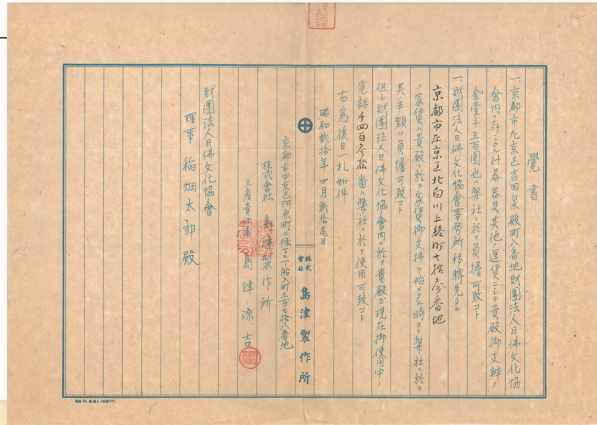 覺書
一、京都市左京區吉田泉殿町八番地財團法人日佛文化協
會內ニ存ル什器器具其他運賃ニシテ貴殿御支辦ノ
金壹千五百圓也弊社ニ於テ負擔可致コト
一、財團法人日佛文化協會事務所移轉先タル
京都市左京區北白川上終町七拾參番地
家賃ハ貴殿ニ於テ家賃御支拂ヲ始メタル時ヨリ弊社ニ於テ
其半額ヲ負擔可致コト
但シ財團法人日佛文化協會內ニ於テ貴殿カ現在御使用中ノ
電話千四百參拾番ハ弊社ニ於テ使用可致コト
右為後日一札如件
昭和貳拾年四月貳拾壱日
京都市中京區河原町二條下ル一ノ船入町三百七拾八番地
株式會社 島津製作所
生産責任者 島津源吉
財團法人日佛文化協會
理事 稲畑太郎殿
株式會社 島津製作所